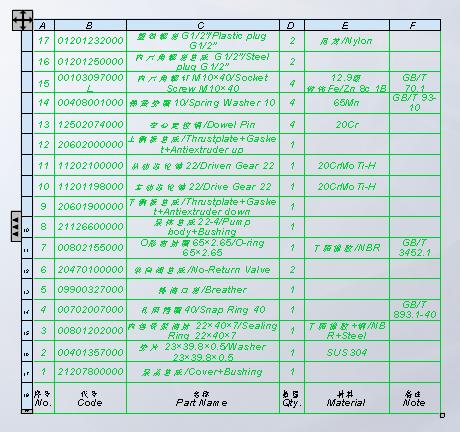 A B C D E F
17 01201232000 G1/2"/Plastic plug G1/2" 2 /Nylon
16 01201250000 G1/2"/Steel plug G1/2" 2
15 00103097000L M10×40/Socket Screw M10×40 4 12.9级 Fe/Zn 8c 1B GB/T 70.1
14 00408001000 10/Spring Washer 10 4 65Mn GB/T 93-10
13 12502074000 空心定位销/Dowel Pin 4 20Cr
12 20602000000 上侧板总成/Thrustplate+Gasket+Antiextruder up 1
11 11202100000 从动齿轮轴 22/Driven Gear 22 1 20CrMoTi-H
10 11201198000 主动齿轮轴 22/Drive Gear 22 1 20CrMoTi-H
9 20601900000 下侧板总成/Thrustplate+Gasket+Antiextruder down 1
8 21126600000 泵体总成 22-4/Pump body+Bushing 1
7 00802155000 O形密封圈 65×2.65/O-ring 65×2.65 1 丁腈橡胶/NBR GB/T 3452.1
6 20470100000 单向阀总成/No-Return Valve 2
5 09900327000 /Breather 1
4 00702007000 40/Snap Ring 40 1 GB/T 893.1-40
3 00801202000 22×40×7/Sealing Ring 22×40×7 1 丁腈橡胶+钢/NBR+Steel
2 00401357000 垫片 23×39.8×0.5/Washer 23×39.8×0.5 1 SUS304
1 21207800000 泵盖总成/Cover+Bushing 1
序号 代号 名称 数量 材料 备注
No. Code Part Name Qty. Material Note